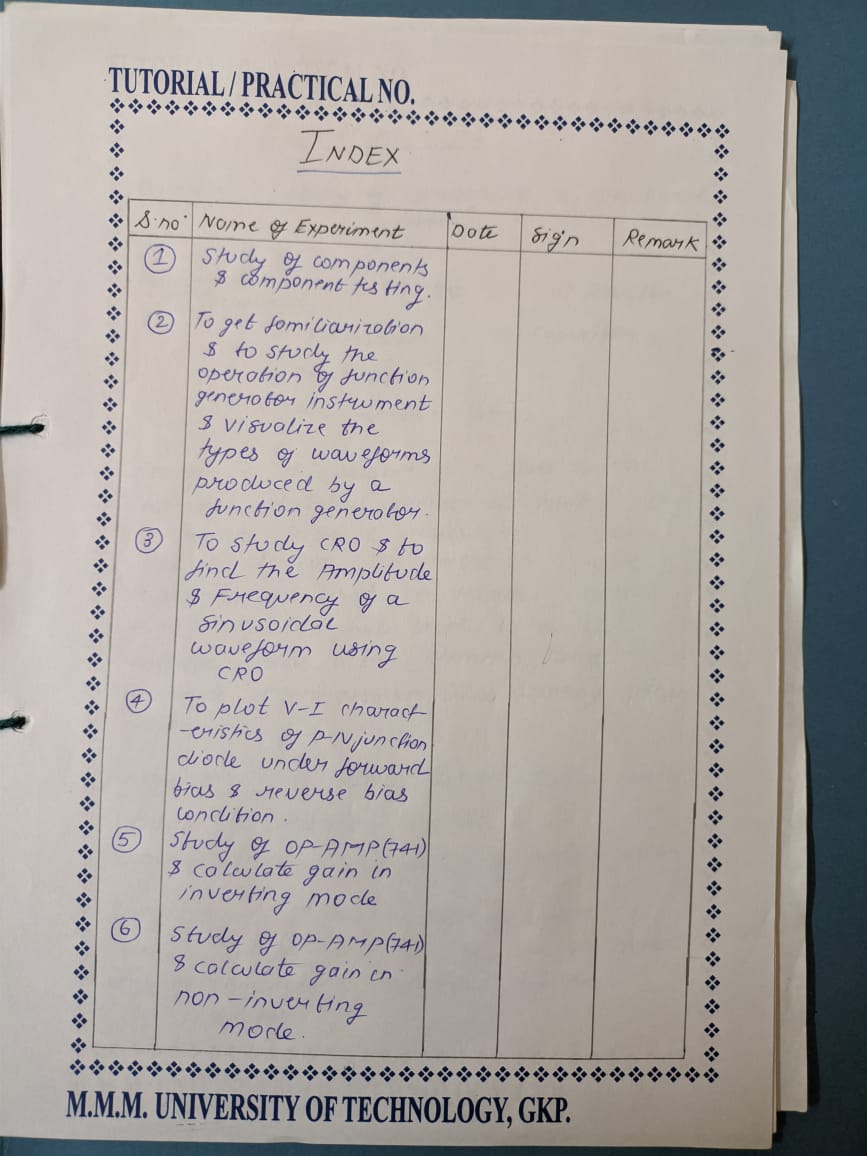 TUTORIAL / PRACTICAL NO.
INDEX
S.no. Name of Experiment Date Sign Remark
1 Study of components
& component testing.
2 To get familiarization
& to study the
operation of function
generator instrument
& visualize the
types of waveforms
produced by a
function generator.
3 To study CRO & to
find the Amplitude
& Frequency of a
sinusoidal
waveform using
CRO
4 To plot V-I charact-
-eristics of P-N junction
diode under forward
bias & reverse bias
condition.
5 Study of OP-AMP(741)
& calculate gain in
inverting mode
6 Study of OP-AMP(741)
& calculate gain in
non-inverting
mode.
M.M.M. UNIVERSITY OF TECHNOLOGY, GKP.